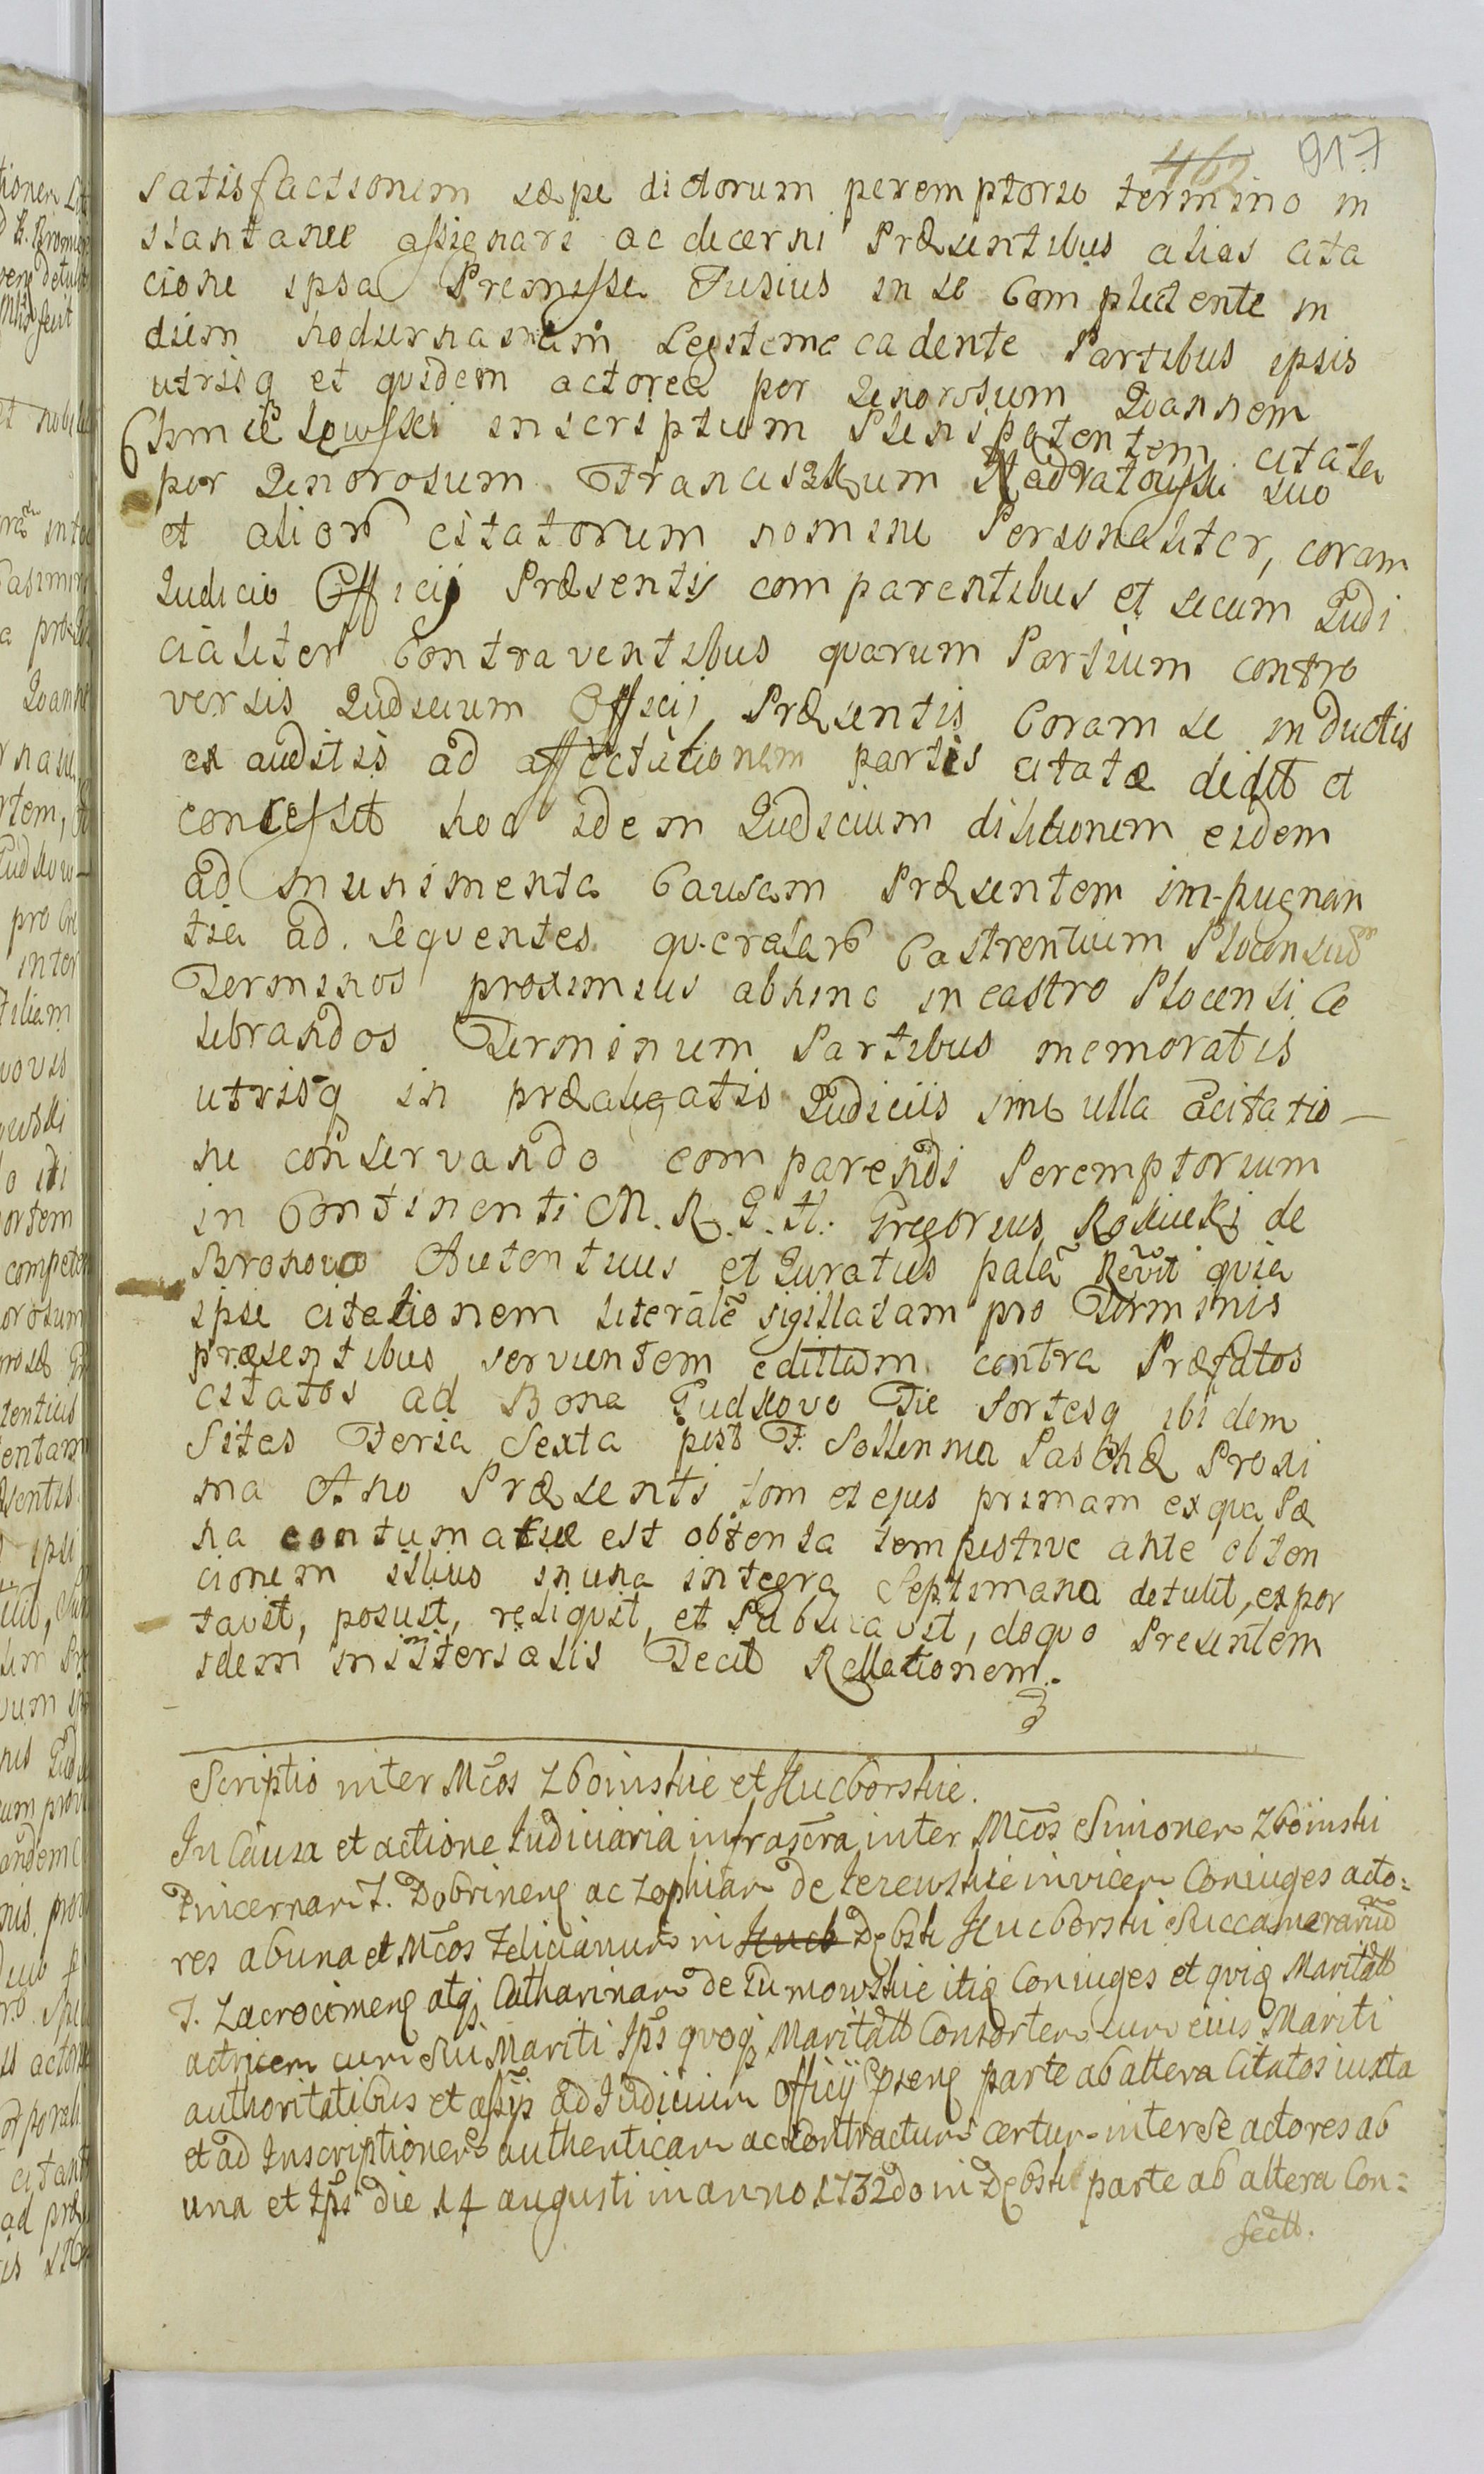 917
satisfactionem sæpe dictorum peremptorio termino in
stantanee assignari ac decerni Præsentibus alias cita
cione ipsa Premisse Fusius in se Complectente in
diem hodiernam cadente Partibus ipsis
utrisq et quidem actorea per Generosum Joannem
inscriptum Plenipotentem citata
per Generosum Franciszkum Nadratowski suo
et alior citatorum nomine Personaliter, coram
Judicio Officij Præsentis comparentibus et secum Judi
cialiter Controventibus quarum Partium contro
versis Judicium Officij Præsentis Coram se inductis
ex auditis ad affectationem partis citatæ dedit et
concessit hoc idem Judicium dilationem eidem
ad munimenta Causam Præsentem impugnan
tia ad sequentes querelar Castrensium Plocensiu
Terminos proximius abhinc in castro Plocensi Ce
lebrandos Terminum Partibus memoratis
utrisq in præalegatis Judiciis sine ulla acitatio
ne conservando comparendi Peremptorium
in Continenti M. R. G. H. Gregorius de
Bronowo Autenticus et Juratus palã Revit quia
ipse citationem literalẽ sigillatam pro Terminis
præsentibus servientem edittam contra Præfatos
citatos ad Bona Gudkowo Die Sortesq ibidem
Sitas Feria Sexta post F. Sollenna Paschæ Proxi
ma Ano Præsenti tom et ejus primam ex qua Pæ
na contumatiæ est obtenta tempestive ante obten
cionem illius in una integra Septimana detulit, expor
tavit, posuit, reliquit, et Publicavit, de quo Presentem
idem ministerialis Fecit Rellationem.
Scriptio inter Mcos Zboinskie et Kucborskie.
In Causa et actione Judiciaria infrascra, inter Mcos Simonem Zboinski
Pincernam T. Dobrinenę ac Zophiam de Jezewskie invicem Coniuges acto:
res ab una et Mcos Felicianum in Kucb Dębsk Kucborski Succamerariũ
T. Zacrocimenę atq; Catharinam de Tumowskie itiq Coniuges et qvię Maritatt
actricem cum Sui Mariti Ips qvoq; Maritatt Consortem cum eius Mariti
authoritatibus et assijs ad Judicium Officij pręnę parte ab altera Citatos iuxta
et ad Inscriptionem authenticam ac Contractum certum inter Se actores ab
una et Ips die 14 augusti in anno 1732do in Dębsk parte ab altera Con:
fectt.